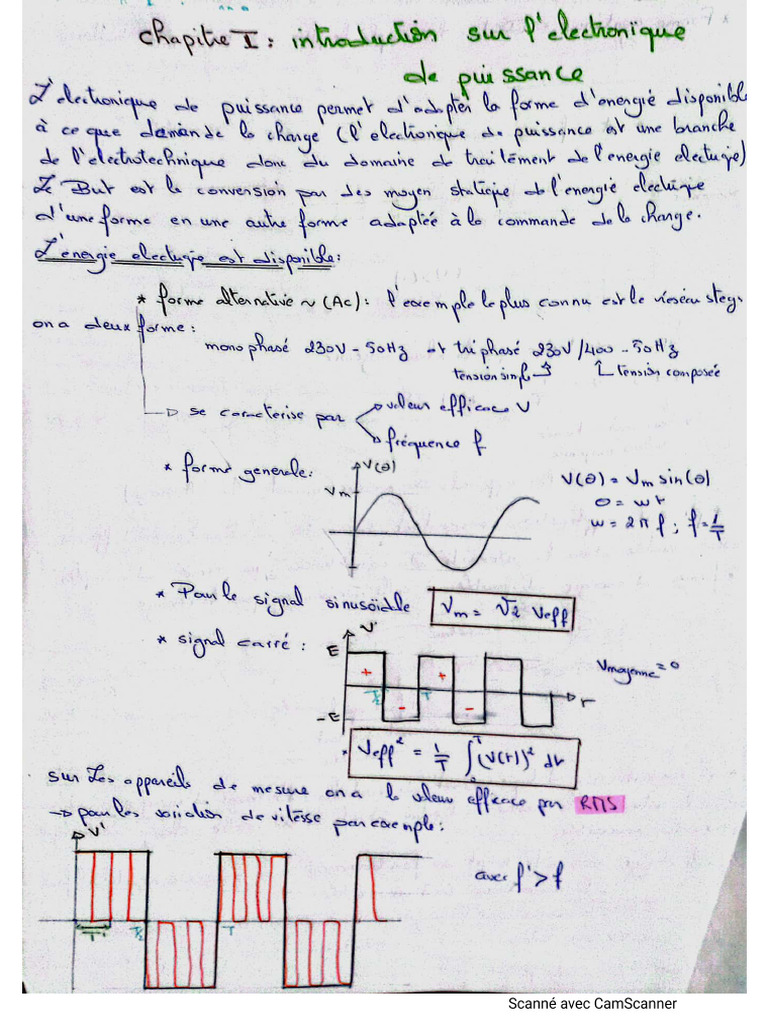 chapitre I : introduction sur l'electronique
de puissance
L'electronique de puissance permet d'adapter la forme d'energié disponible
à ce que demande la charge (l'electronique de puissance est une branche
de l'electrotechnique donc du domaine de traitement de l'energie electuqie)
Le But est la conversion par des moyen statique de l'energié electrique
d'une forme en une autre forme adaptée à la commande de la charge.
L'énergie electuqie est disponible:
* forme alternative ~ (Ac): l'exemple le plus connu est le réseau steg
on a deux forme:
monophasé 230V - 50Hz et triphasé 230V/400 - 50Hz
tension simple tension composée
se caracterise par valeur efficace V
fréquence f
* forme generale:
V(θ)
Vm
V(θ) = Vm sin(θ)
θ = wt
w = 2πf ; f = 1/T
* Pour le signal sinusoïdale Vm = √2 Veff
* signal carré :
V
E
+ +
T/2 T
- -
-E
t
Vmoyenne = 0
* Veff² = 1/T ∫₀ᵀ (V(t))² dt
sur Les appareils de mesure on a la valeur efficace par RMS
→ pour les variation de vitesse par exemple:
V'
T' T/2 T
avec f' > f
Scanné avec CamScanner